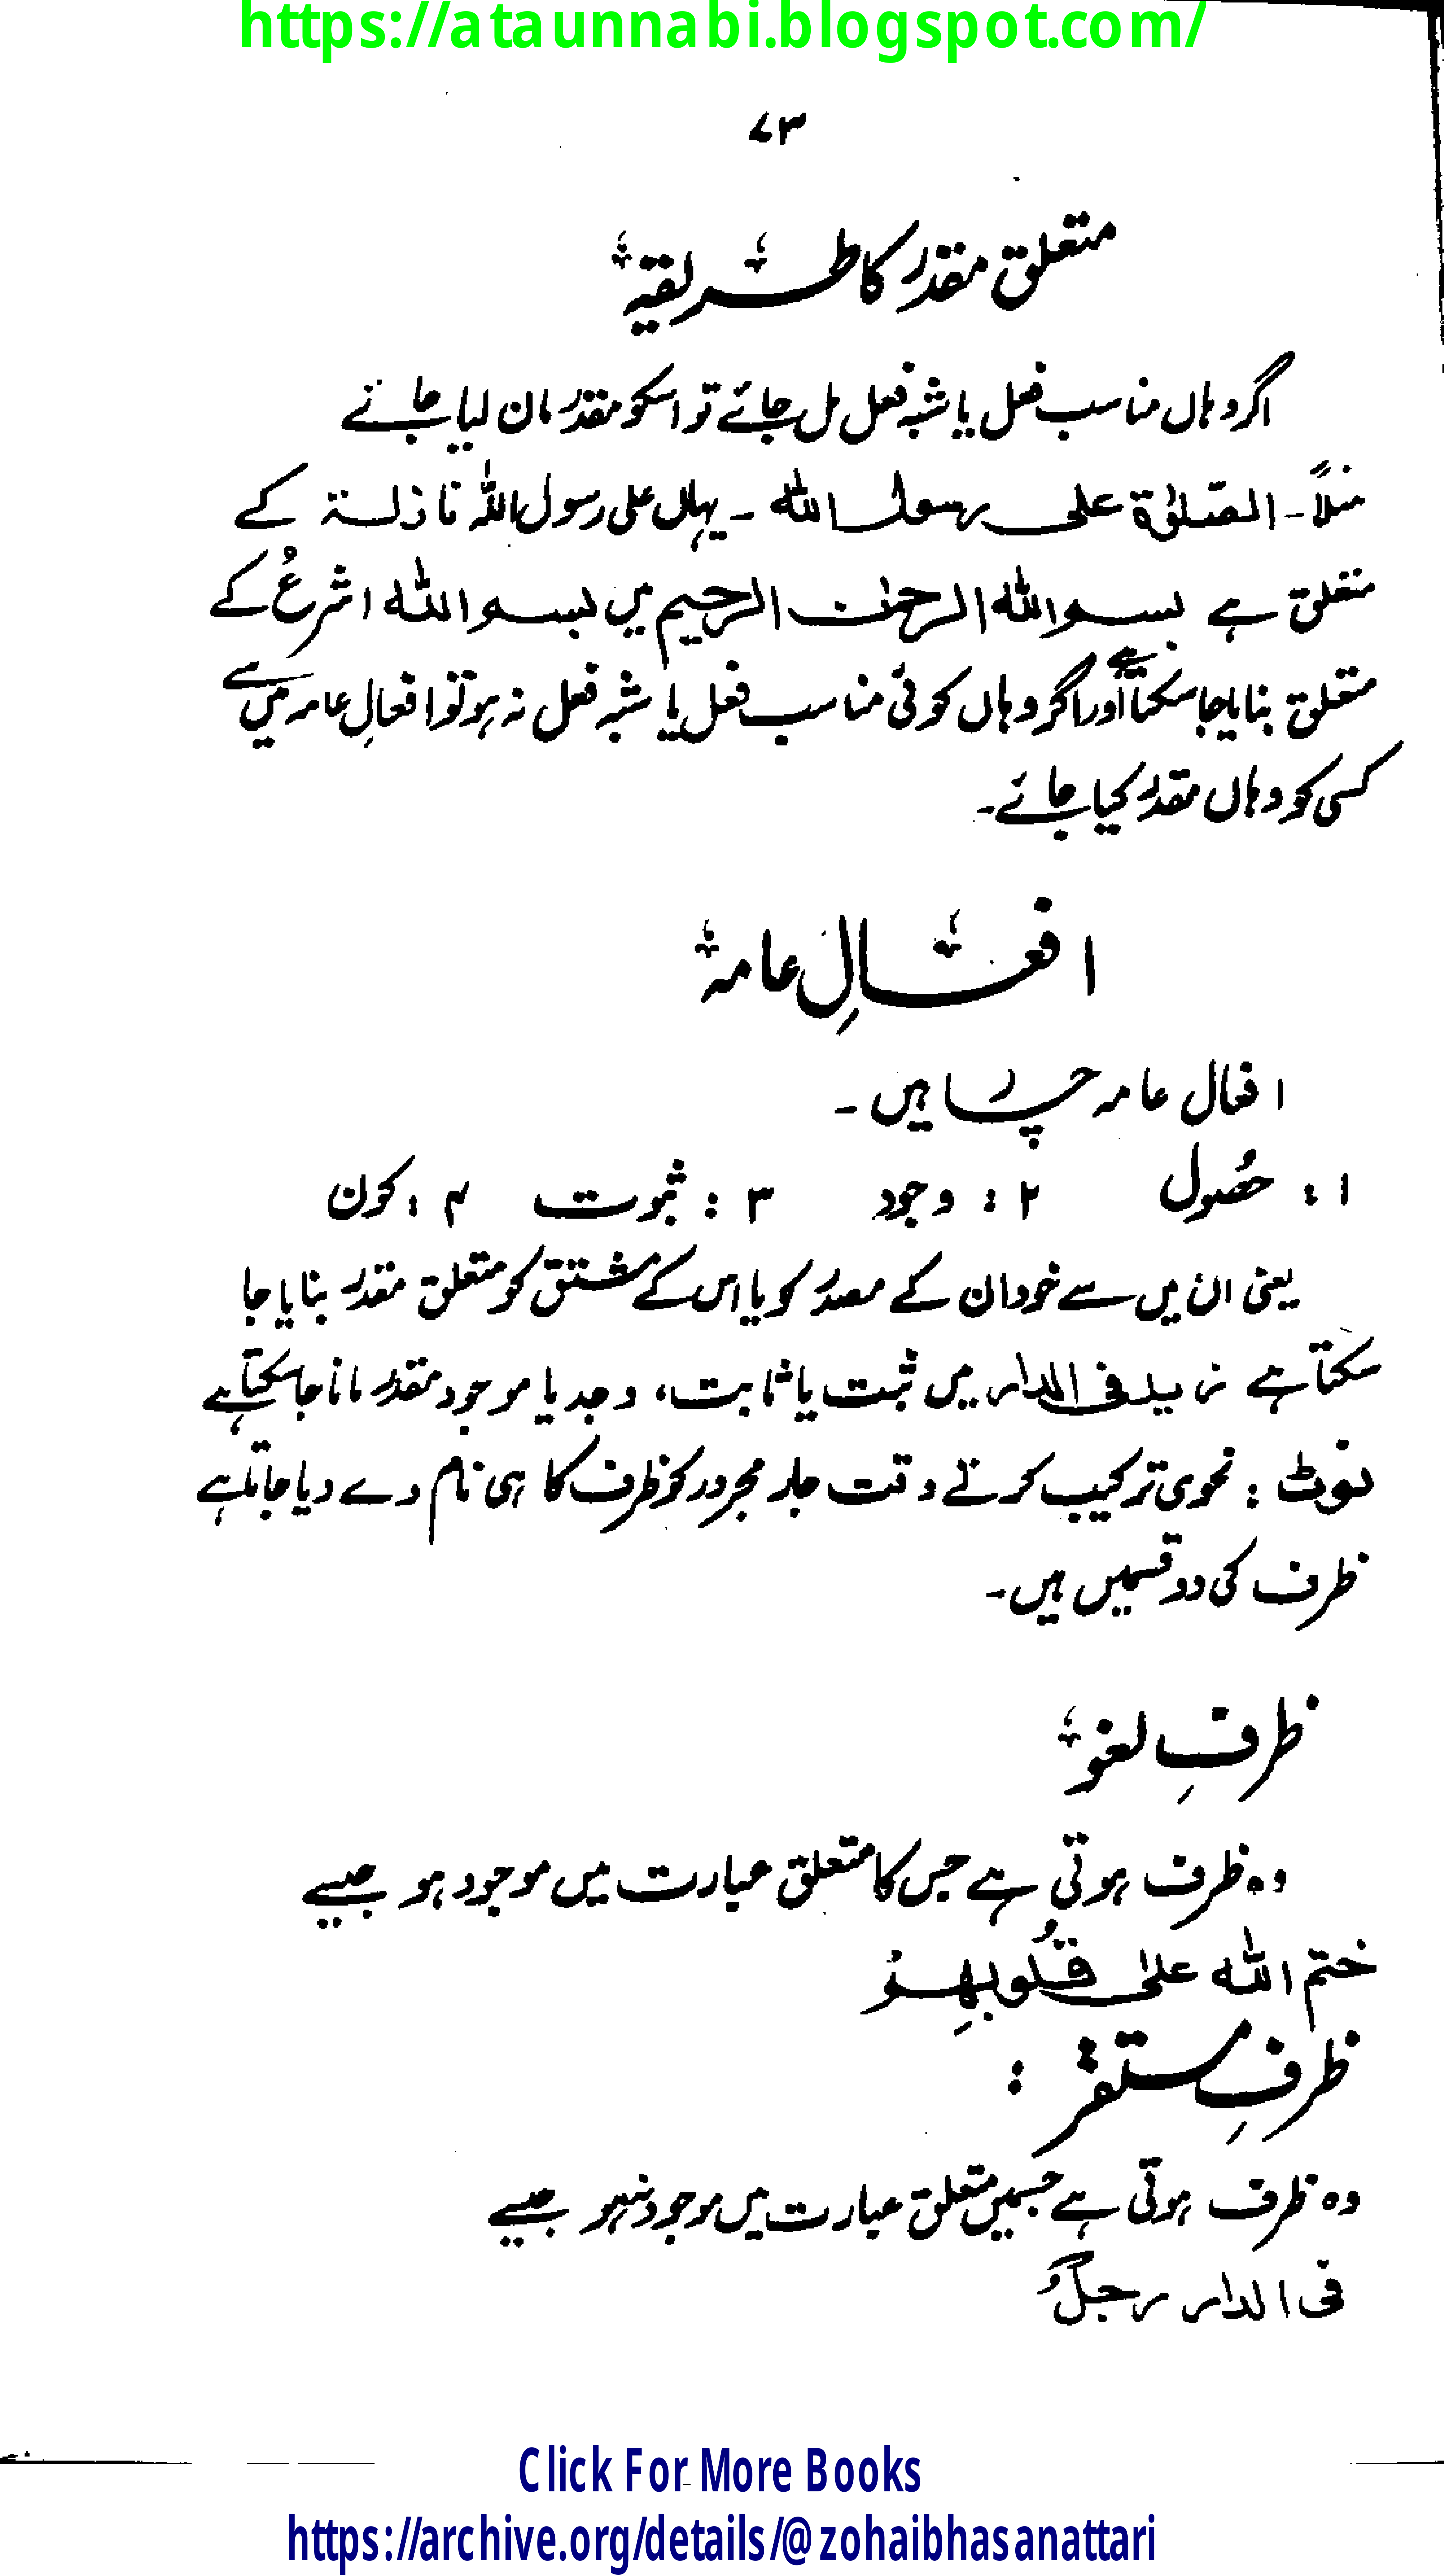 https://ataunnabi.blogspot.com/
۷۳
متعلق مقدر کا طریقہ
اگر وہاں مناسب فعل یا شبہ فعل مل جائے تو اسکو مقدر مان لیا جائے
مثلاً۔ الصّلوٰة علی رسول اللّٰه ۔ یہاں علی رسول اللّٰہ نازلۃ کے
متعلق ہے بسم اللّٰه الرحمٰن الرحیم میں بسم اللّٰه اشرعُ کے
متعلق بنایا جا سکتا ہے اور اگر وہاں کوئی مناسب فعل یا شبہ فعل نہ ہو تو افعالِ عامہ میں سے
کسی کو وہاں مقدر کیا جائے۔
افعالِ عامہ
افعال عامہ چار ہیں ۔
۱ : حصُول ۲ : وجود ۳ : ثبوت ۴ : کون
یعنی ان میں سے خود ان کے مصدر کو یا اس کے مشتق کو متعلق مقدر بنایا جا
سکتا ہے زید فی الدار میں ثبت یا ثابت، وجد یا موجود مقدر مانا جا سکتا ہے
نوٹ : نحوی ترکیب کرتے وقت جار مجرور کو ظرف کا ہی نام دے دیا جاتا ہے
ظرف کی دو قسمیں ہیں۔
ظرفِ لغو
وہ ظرف ہوتی ہے جس کا متعلق عبارت میں موجود ہو جیسے
ختم اللّٰه علیٰ قُلُوبِهِمْ
ظرفِ مستقر :
وہ ظرف ہوتی ہے جسمیں متعلق عبارت میں موجود نہہو جیسے
فی الدار رجلٌ
Click For More Books
https://archive.org/details/@zohaibhasanattari